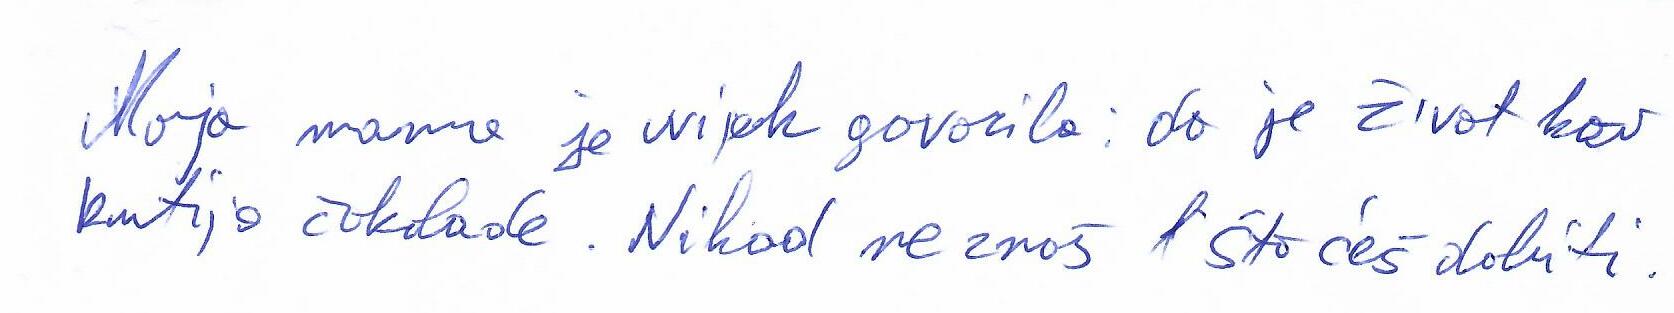 Moja mama je uvijek govorila: da je život kao
kutija čokolade. Nikad ne znaš što ćeš dobiti.